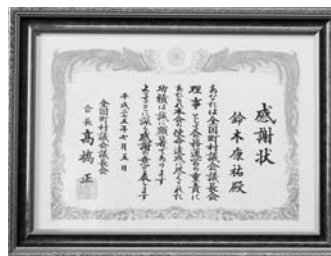 感謝状
鈴木康祐殿
あなたは全国町村議会議長会
理事として会務運営の重責に
あたられ本会の使命達成に尽くされた
功績は誠に顕著であります
よってここに深く感謝の意を表します
平成二十五年七月五日
全国町村議会議長会
会長 髙橋正